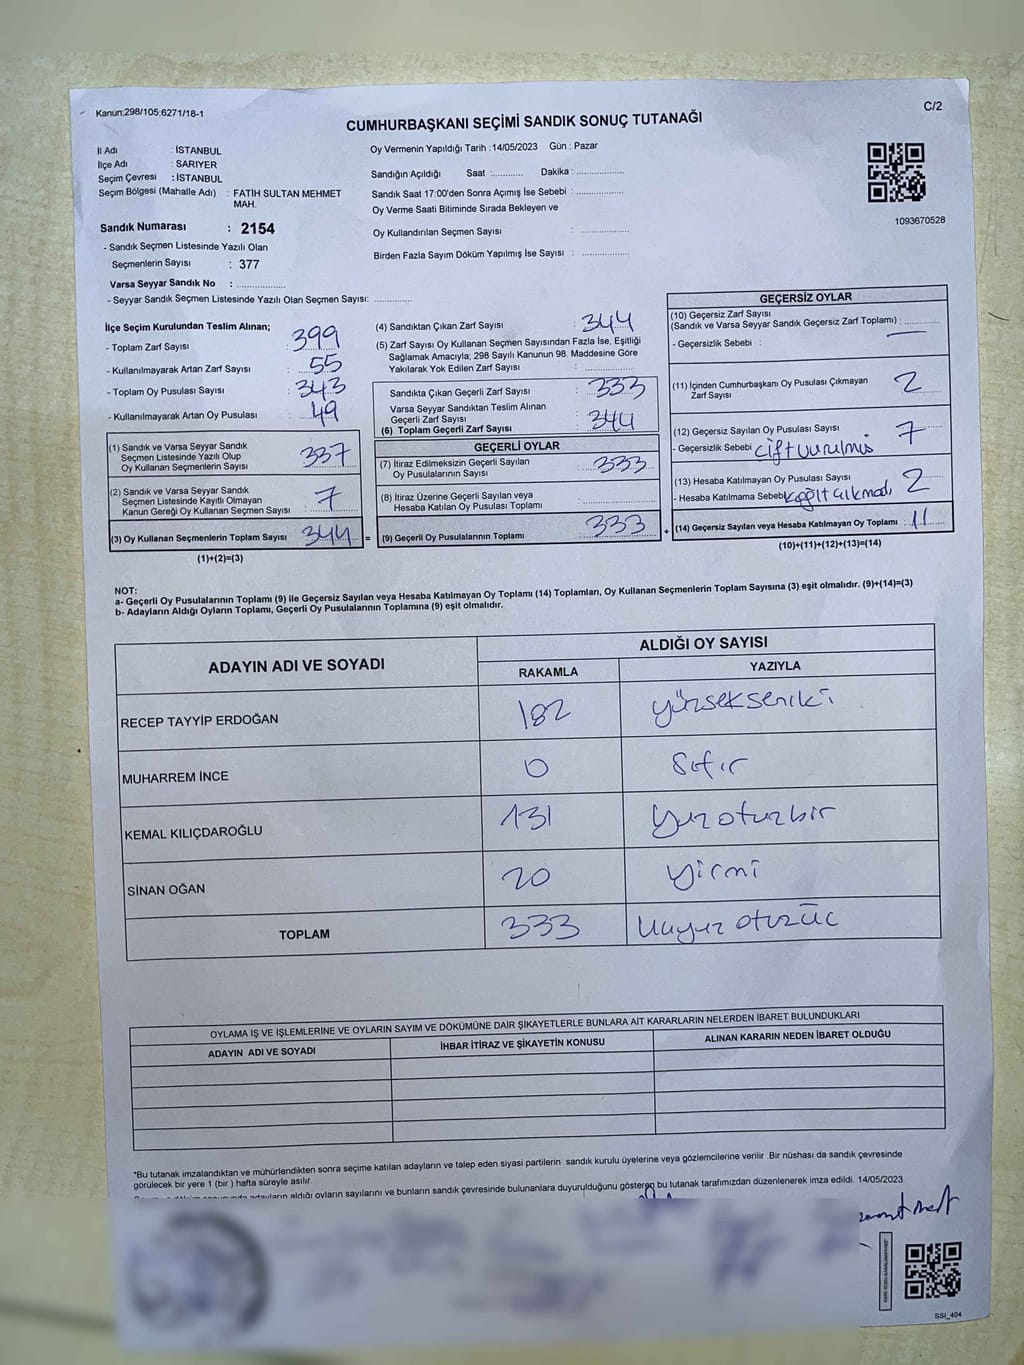 Kanun:298/105;6271/18-1
C/2
CUMHURBAŞKANI SEÇİMİ SANDIK SONUÇ TUTANAĞI
İl Adı : İSTANBUL
İlçe Adı : SARIYER
Seçim Çevresi : İSTANBUL
Seçim Bölgesi (Mahalle Adı) : FATİH SULTAN MEHMET
MAH.
Sandık Numarası : 2154
- Sandık Seçmen Listesinde Yazılı Olan
Seçmenlerin Sayısı : 377
Varsa Seyyar Sandık No : ................
- Seyyar Sandık Seçmen Listesinde Yazılı Olan Seçmen Sayısı: ............
Oy Vermenin Yapıldığı Tarih :14/05/2023 Gün : Pazar
Sandığın Açıldığı Saat :.......... Dakika : ................
Sandık Saat 17:00'den Sonra Açımış İse Sebebi : ................
Oy Verme Saati Bitiminde Sırada Bekleyen ve
Oy Kullandırılan Seçmen Sayısı : ................
Birden Fazla Sayım Döküm Yapılmış İse Sayısı : ................
1093670528
İlçe Seçim Kurulundan Teslim Alınan;
- Toplam Zarf Sayısı : 399
- Kullanılmayarak Artan Zarf Sayısı : 55
- Toplam Oy Pusulası Sayısı : 343
- Kullanılmayarak Artan Oy Pusulası : 49
(1) Sandık ve Varsa Seyyar Sandık
Seçmen Listesinde Yazılı Olup
Oy Kullanan Seçmenlerin Sayısı : 337
(2) Sandık ve Varsa Seyyar Sandık
Seçmen Listesinde Kayıtlı Olmayan
Kanun Gereği Oy Kullanan Seçmen Sayısı : 7
(3) Oy Kullanan Seçmenlerin Toplam Sayısı : 344 =
(1)+(2)=(3)
(4) Sandıktan Çıkan Zarf Sayısı : 344
(5) Zarf Sayısı Oy Kullanan Seçmen Sayısından Fazla İse, Eşitliği
Sağlamak Amacıyla; 298 Sayılı Kanunun 98. Maddesine Göre
Yakılarak Yok Edilen Zarf Sayısı : ................
Sandıkta Çıkan Geçerli Zarf Sayısı : 333
Varsa Seyyar Sandıktan Teslim Alınan
Geçerli Zarf Sayısı
(6) Toplam Geçerli Zarf Sayısı : 344
GEÇERLİ OYLAR
(7) İtiraz Edilmeksizin Geçerli Sayılan
Oy Pusulalarının Sayısı : 333
(8) İtiraz Üzerine Geçerli Sayılan veya
Hesaba Katılan Oy Pusulası Toplamı : ................
(9) Geçerli Oy Pusulalarının Toplamı : 333 +
GEÇERSİZ OYLAR
(10) Geçersiz Zarf Sayısı
(Sandık ve Varsa Seyyar Sandık Geçersiz Zarf Toplamı) : ............
- Geçersizlik Sebebi : —
(11) İçinden Cumhurbaşkanı Oy Pusulası Çıkmayan
Zarf Sayısı : 2
(12) Geçersiz Sayılan Oy Pusulası Sayısı : 7
- Geçersizlik Sebebi çift vurulmis
(13) Hesaba Katılmayan Oy Pusulası Sayısı : 2
- Hesaba Katılmama Sebebi kağıt çıkmadı
(14) Geçersiz Sayılan veya Hesaba Katılmayan Oy Toplamı : 11
(10)+(11)+(12)+(13)=(14)
NOT:
a- Geçerli Oy Pusulalarının Toplamı (9) ile Geçersiz Sayılan veya Hesaba Katılmayan Oy Toplamı (14) Toplamları, Oy Kullanan Seçmenlerin Toplam Sayısına (3) eşit olmalıdır. (9)+(14)=(3)
b- Adayların Aldığı Oyların Toplamı, Geçerli Oy Pusulalarının Toplamına (9) eşit olmalıdır.
ADAYIN ADI VE SOYADI
ALDIĞI OY SAYISI
RAKAMLA YAZIYLA
RECEP TAYYİP ERDOĞAN 182 yüzsekseniki
MUHARREM İNCE 0 Sıfır
KEMAL KILIÇDAROĞLU 131 Yuzotuzbir
SİNAN OĞAN 20 yirmi
TOPLAM 333 Uuyuz otuzüç
OYLAMA İŞ VE İŞLEMLERİNE VE OYLARIN SAYIM VE DÖKÜMÜNE DAİR ŞİKAYETLERLE BUNLARA AİT KARARLARIN NELERDEN İBARET BULUNDUKLARI
ADAYIN ADI VE SOYADI İHBAR İTİRAZ VE ŞİKAYETİN KONUSU ALINAN KARARIN NEDEN İBARET OLDUĞU
*Bu tutanak imzalandıktan ve mühürlendikten sonra seçime katılan adayların ve talep eden siyasi partilerin sandık kurulu üyelerine veya gözlemcilerine verilir .Bir nüshası da sandık çevresinde
görülecek bir yere 1 (bir ) hafta süreyle asılır.
adayların aldığı oyların sayılarını ve bunların sandık çevresinde bulunanlara duyurulduğunu gösteren bu tutanak tarafımızdan düzenlenerek imza edildi. 14/05/2023
SSI_404